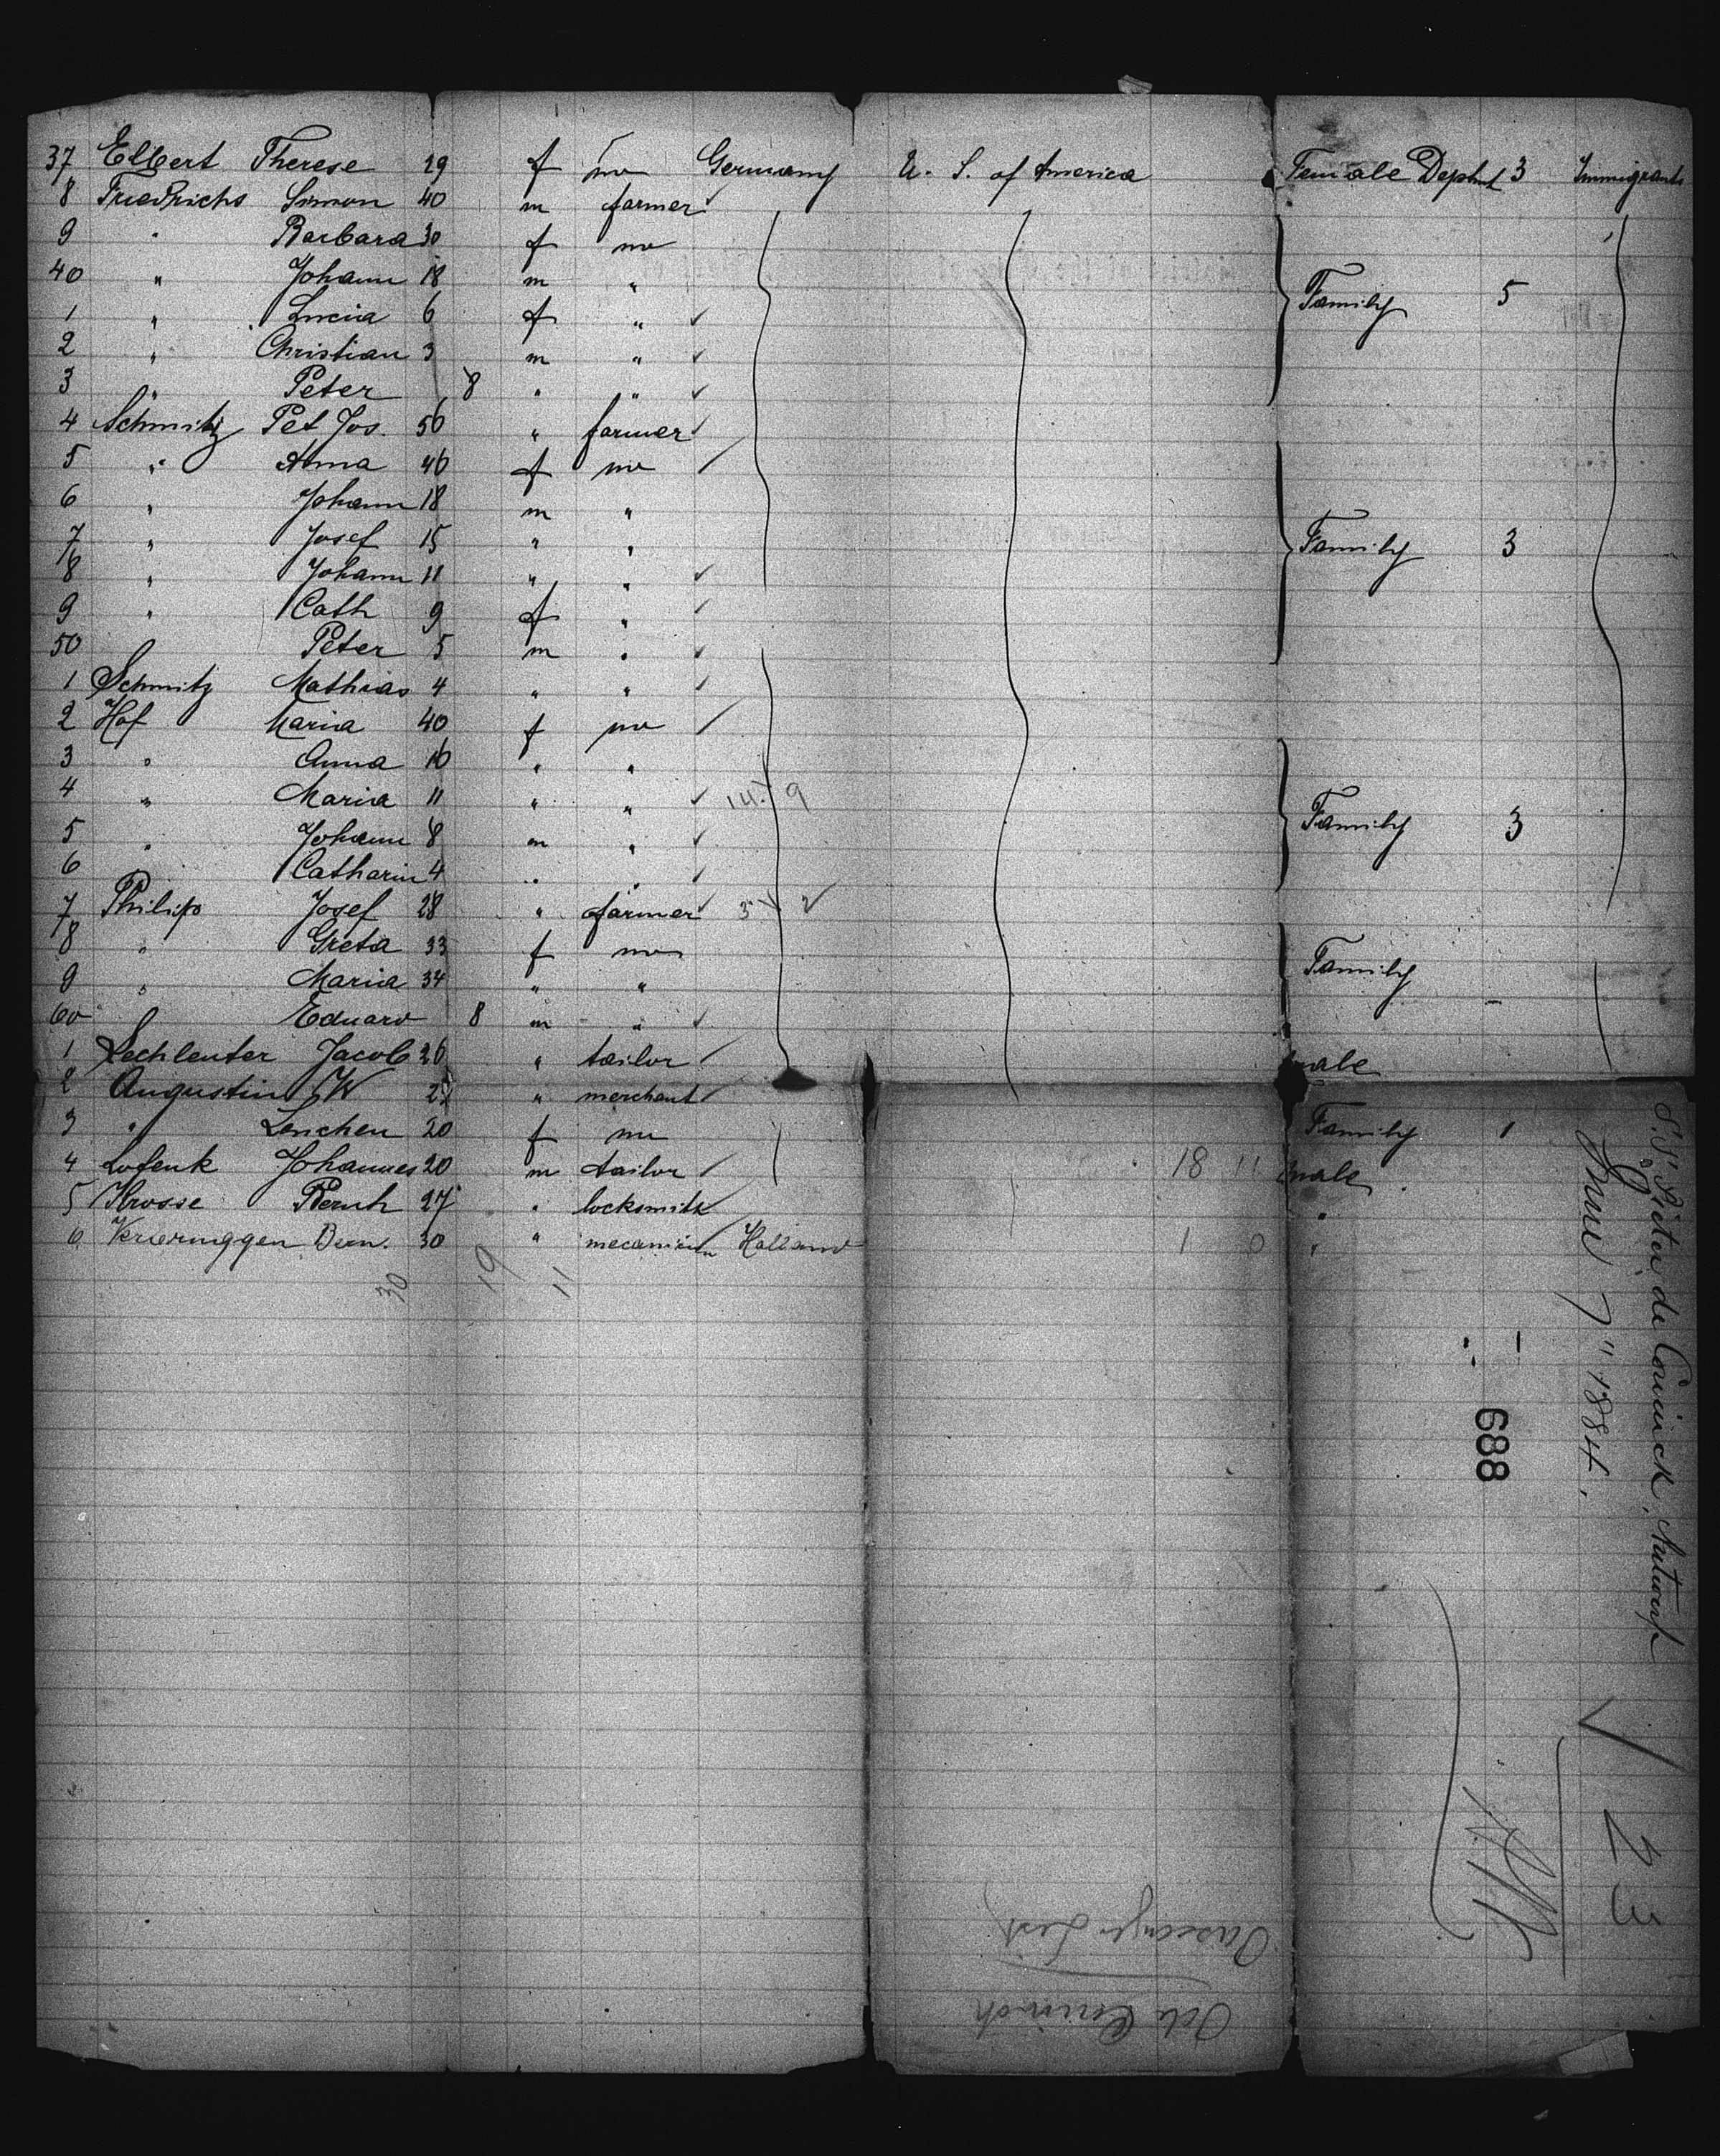 37 Elbert Therese 29 f no Germany U. S. of America Female Dephnt 3 Immigrants
8 Friedrichs Simon 40 m farmer
9 " Barbara 30 f no
40 " Johann 18 m " Family 5
1 " Lucia 6 f "
2 " Christian 3 m "
3 " Peter 8 " "
4 Schmitz Pet Jos. 50 " farmer
5 " Anna 46 f no
6 " Johann 18 m "
7 " Josef 15 " " Family 3
8 " Johann 11 " "
9 " Cath 9 f "
50 " Peter 5 m "
1 Schmitz Mathias 4 " "
2 Hof Maria 40 f no
3 " Anna 16 " "
4 " Maria 11 " " 14 9 Family 3
5 " Johann 8 m "
6 " Catharin 4 " "
7 Philips Josef 28 " farmer 3 2
8 " Greta 33 f no Family
9 " Maria 34 " " –
60 Eduard 8 m "
1 Lechleuter Jacob 26 " tailor male
2 Augustin W " merchant
3 " Lenchen 20 f no Family 1
4 Lofenk Johannes 20 m tailor 18 11 male
5 Krosse 27 " locksmith "
6 Bern. 30 " mecanicien Holland 1 0 "
30 19 11
S.S. Pieter de Coninck, Antwerp
June 7" 1884.
688
23
Passenger List
de Coninck